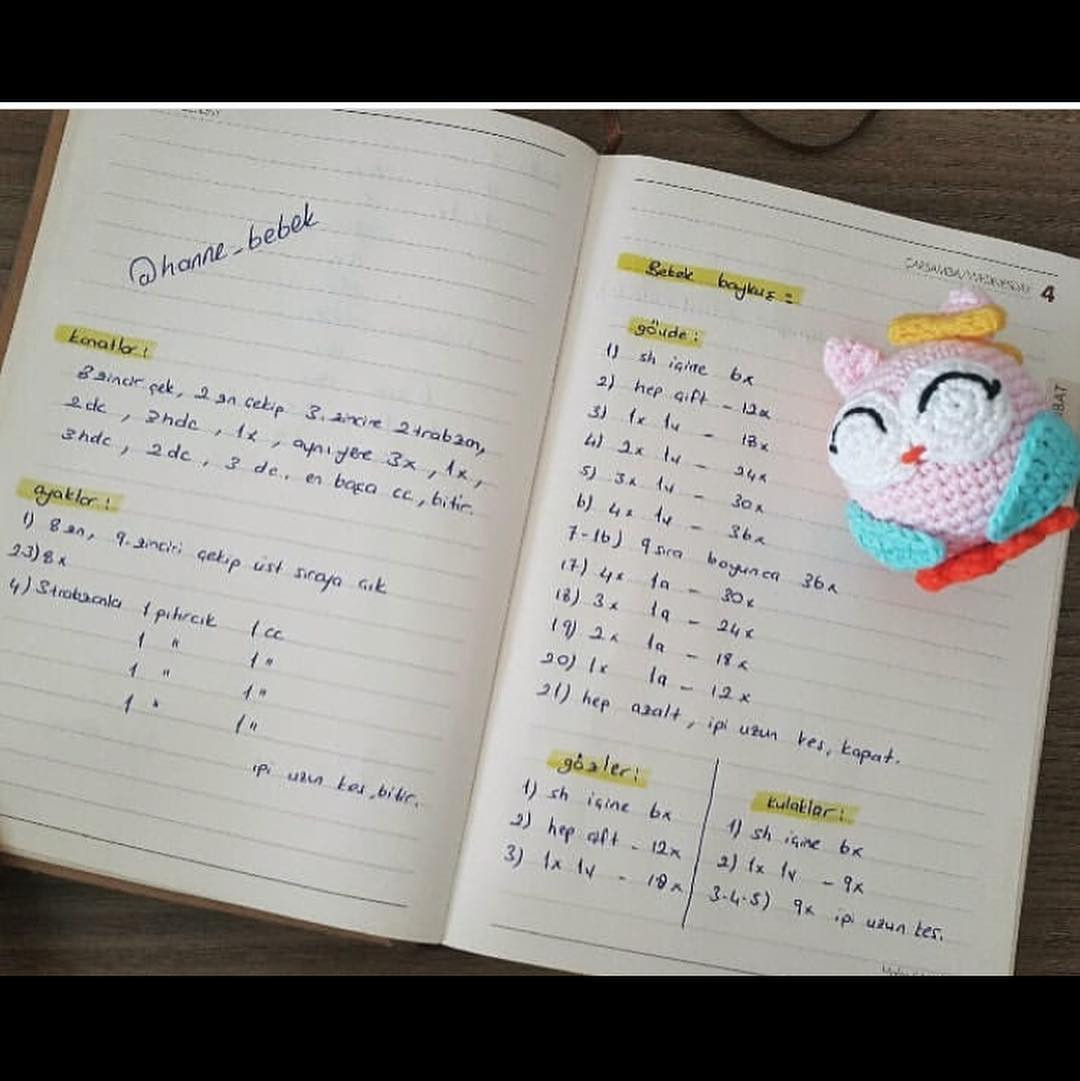 @hanne_bebek
kanatlar:
8 zincir çek, 2 zn çekip 3. zincire 2 trabzan,
2dc, 3hdc, 1x, aynı yere 3x, 1x,
3hdc, 2dc, 3 dc. en başa cc, bitir.
ayaklar:
1) 8 zn, 9. zinciri çekip üst sıraya çık
2.3) 8x
4) 3 trabzanla 1 pıtırcık 1 cc
1 " 1 "
1 " 1 "
1 " 1 "
ipi uzun kes, bitir.
ÇARŞAMBA/WEDNESDAY 4
Bebek baykuş =
gövde:
1) sh içine 6x
2) hep çift - 12x
3) 1x 1v - 18x
4) 2x 1v - 24x
5) 3x 1v - 30x
6) 4x 1v - 36x
7-16) 9 sıra boyunca 36x
17) 4x 1a - 30x
18) 3x 1a - 24x
19) 2x 1a - 18x
20) 1x 1a - 12x
21) hep azalt, ipi uzun kes, kapat.
gözler:
1) sh içine 6x
2) hep çift - 12x
3) 1x 1v - 18x
kulaklar:
1) sh içine 6x
2) 1x 1v - 9x
3-4-5) 9x ipi uzun kes.